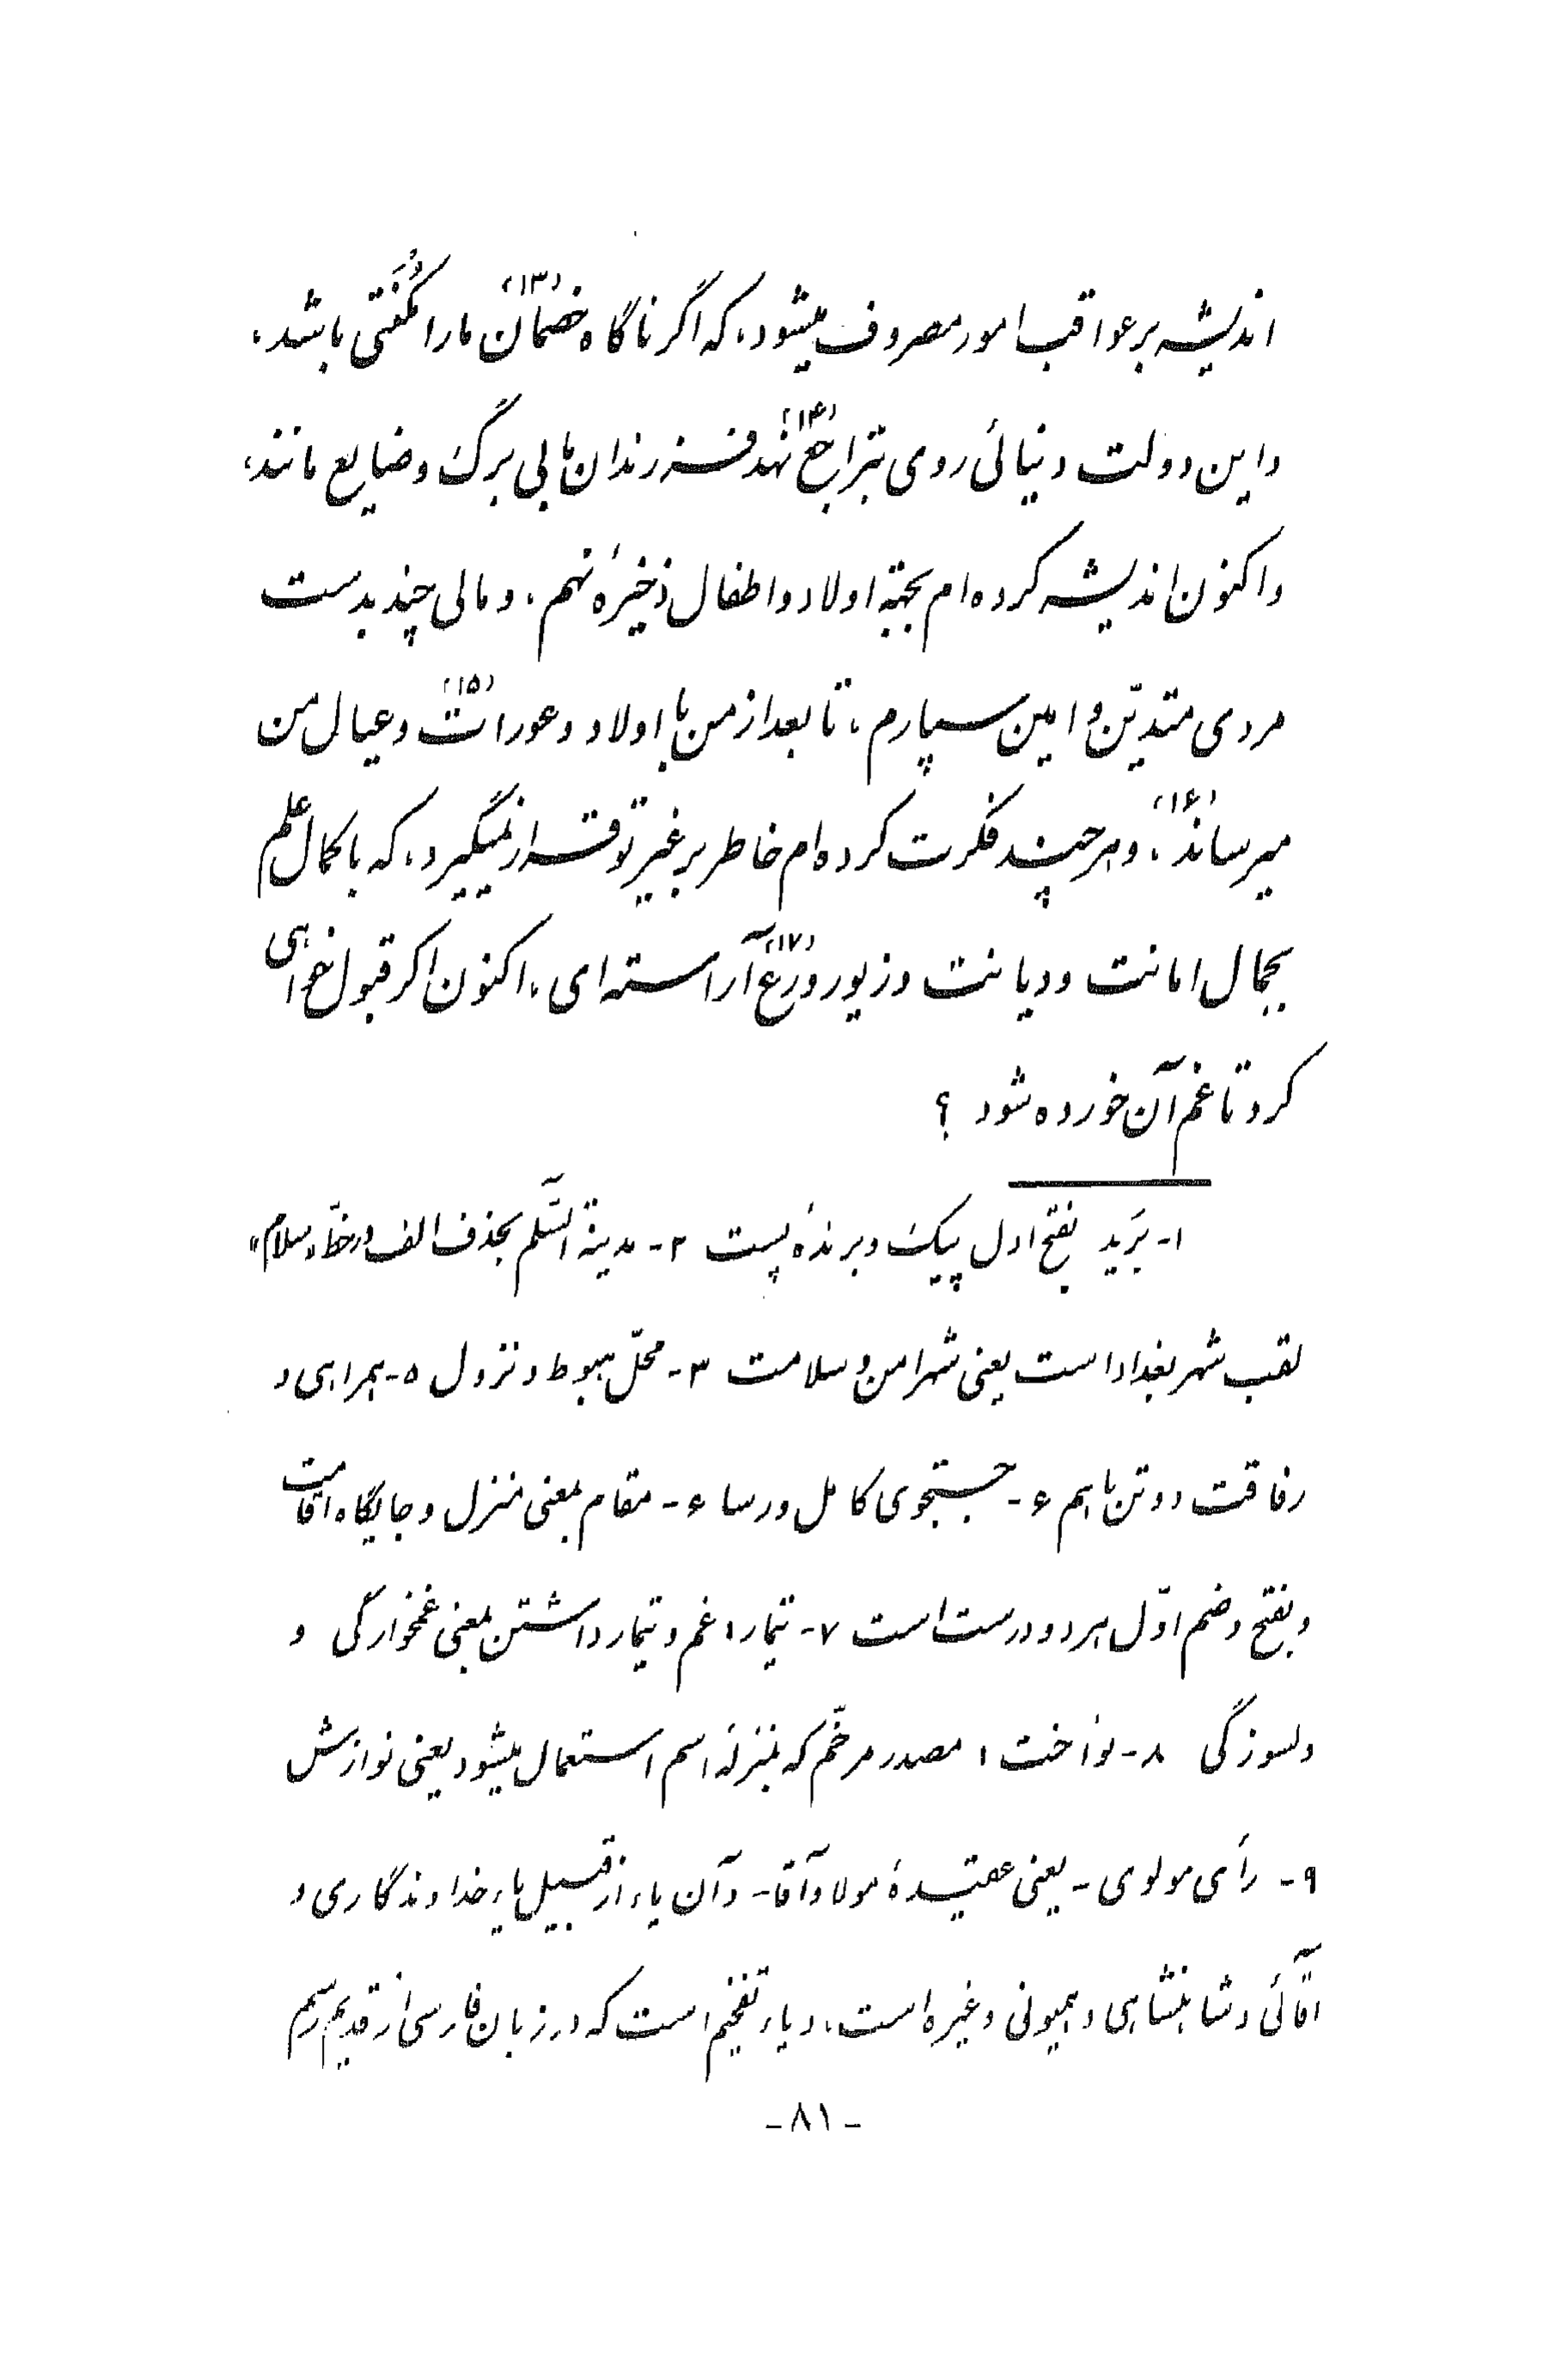 اندیشه بر عواقب امور مصروف میشود، که اگر ناگاه خصمان (۱۳) ما را مُکْنَتی باشد،
و این دولت دنیائی روی بتراجع (۱۴) نهد فرزندان ما بی برگ و ضایع مانند،
و اکنون اندیشه کرده ام بجهة اولاد و اطفال ذخیرهٔ نهم، و مالی چند بدست
مردی متدیّن و امین سپارم، تا بعد از من با اولاد و عورات (۱۵) و عیال من
میرساند (۱۶)، و هر چند فکرت کرده ام خاطر بر غیر تو قرار نمیگیرد، که با کمال علم
بجمال امانت و دیانت و زیور ورع (۱۷) آراسته ای، اکنون اگر قبول خواهی
کرد تا غم آن خورده شود ؟
۱- بَرید بفتح اول پیک و برندهٔ پست ۲- مدینة السّلم بحذف الف در خطّ «سلام»
لقب شهر بغداد است یعنی شهر امن و سلامت ۳- محلّ هبوط و نزول ۵- همراهی و
رفاقت دو تن با هم ۶- جستجوی کامل و رسا ۶- مقام بمعنی منزل و جایگاه اقامت
و بفتح و ضم اوّل هر دو درست است ۷- تیمار، غم و تیمار داشتن بمعنی غمخوارگی و
دلسوزگی ۸- نواخت، مصدر مرخّم که بمنزلهٔ اسم استعمال میشود یعنی نوازش
۹- رأی مولوی - یعنی عقیدهٔ مولا و آقا - و آن یاء از قبیل یاءِ خداوندگاری و
آقائی و شاهنشاهی و همیونی و غیره است، و یاء تفخیم است که در زبان فارسی از قدیم رسم
- ۸۱ -